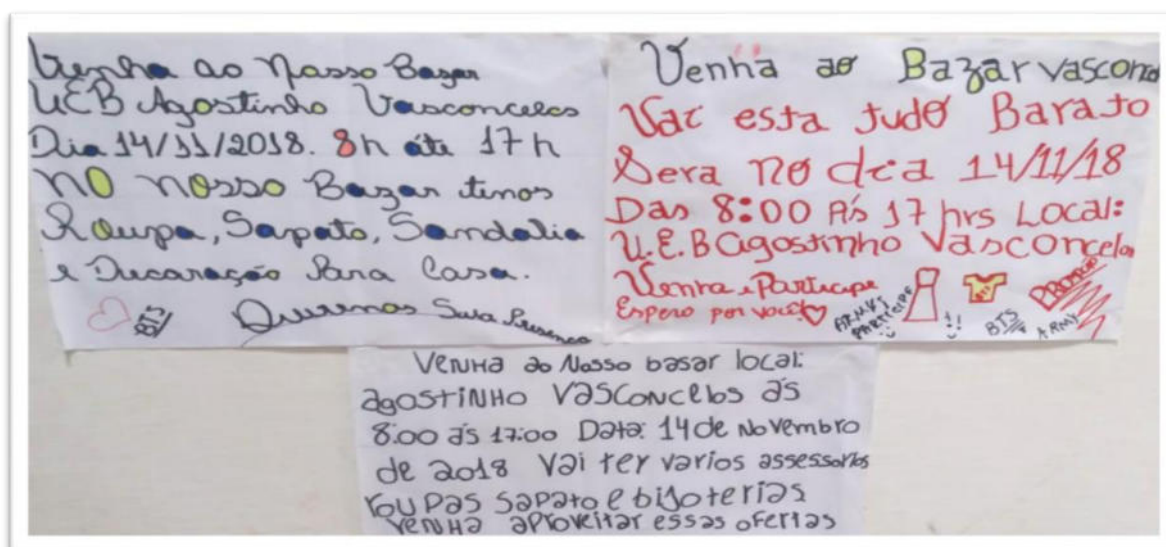 Venha ao Nosso Bazar
UEB Agostinho Vasconcelos
Dia 14/11/2018. 8h áta 17h
NO NOSSO Bazar temos
Roupa, Sapato, Sandalia
e Decaração Para Casa.
BTS Queremos Sua Presença
Venha ao Bazar vascon
Vai esta tudo Barato
Sera no dia 14/11/18
Das 8:00 Às 17 hrs Local:
U.E.B agostinho Vasconcelos
Venha e Participe
Espero por você
ARMYS PARTICIPE
!!
BTS
ARMY
VENHA ao Nosso basar local:
agostiNHO VasConcelos às
8:00 às 17:00 Data: 14 de Novembro
de 2018 Vai ter varios assessorios
roupas sapato e bijoterias
VENHA aproveitar essas ofertas